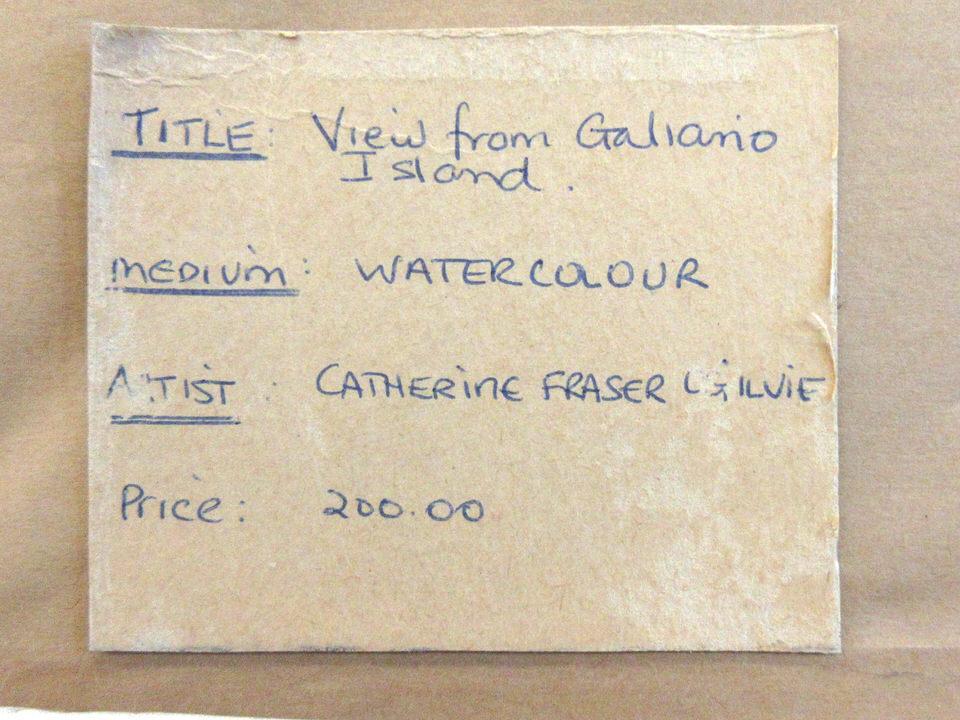 TITLE: View from Galiano
Island.
MEDIUM: WATERCOLOUR
ARTIST: CATHERINE FRASER
Price: 200.00